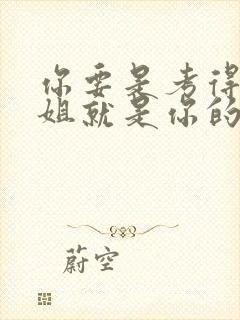 你要是考得
姐就是你的
蔚空